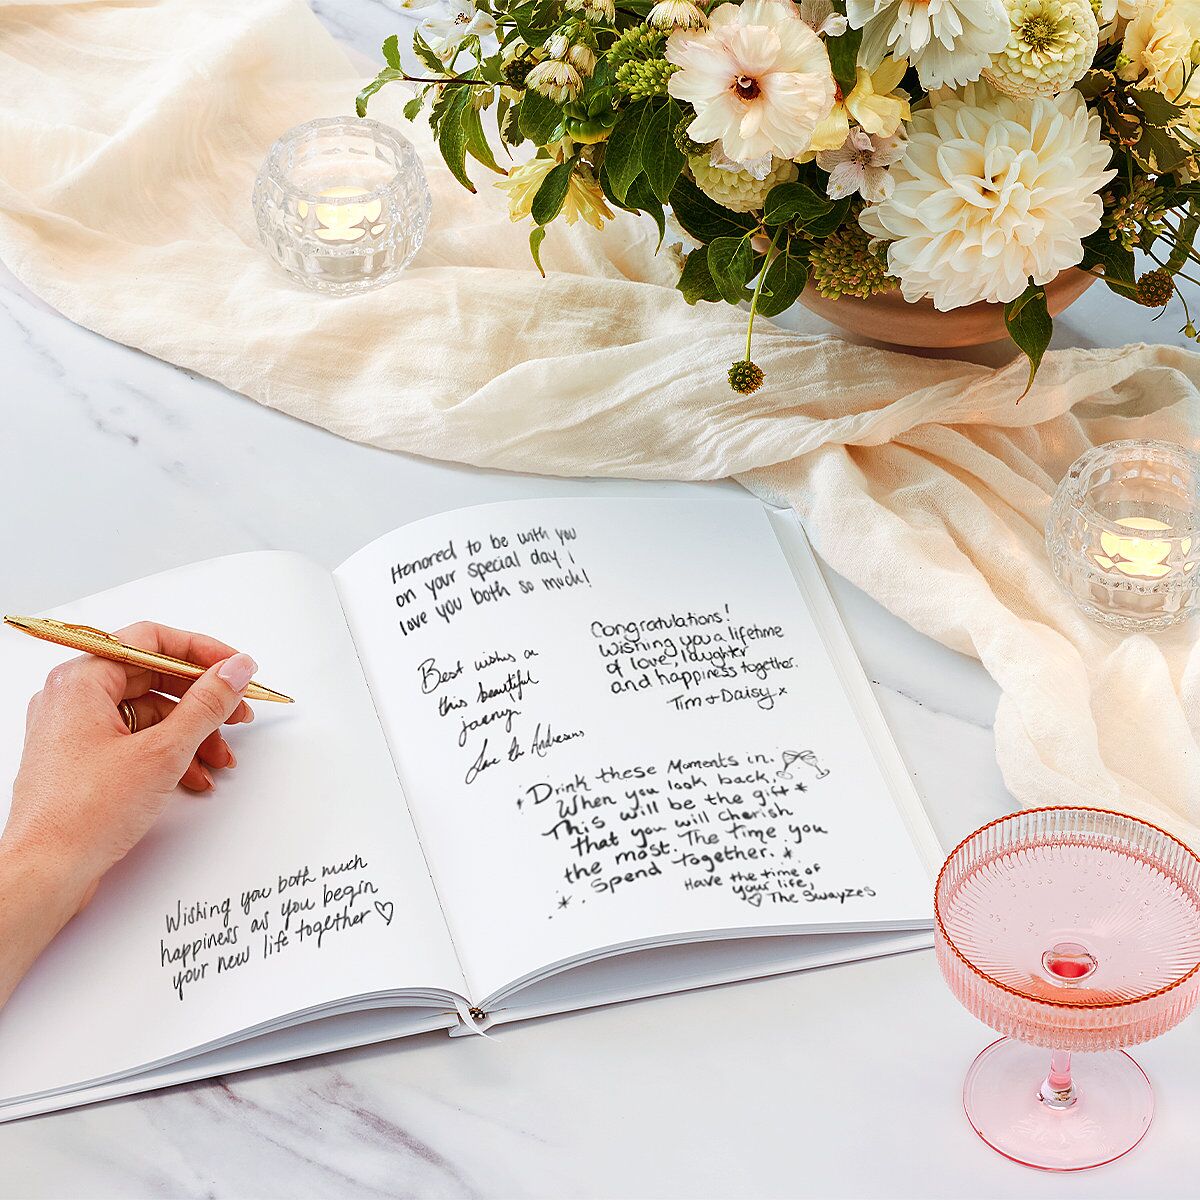 Wishing you both much
happiness as you begin
your new life together ♡
Honored to be with you
on your special day I
love you both so much!
Congratulations!
Wishing you a lifetime
of love, laughter
and happiness together.
Tim + Daisy x
Best wishes on
this beautiful
journey.
Love the
Drink these Moments in.
When you look back,
This will be the gift *
that you will cherish
the most. The time you
Spend together. *
Have the time of
your life,
♡ The Swayzes